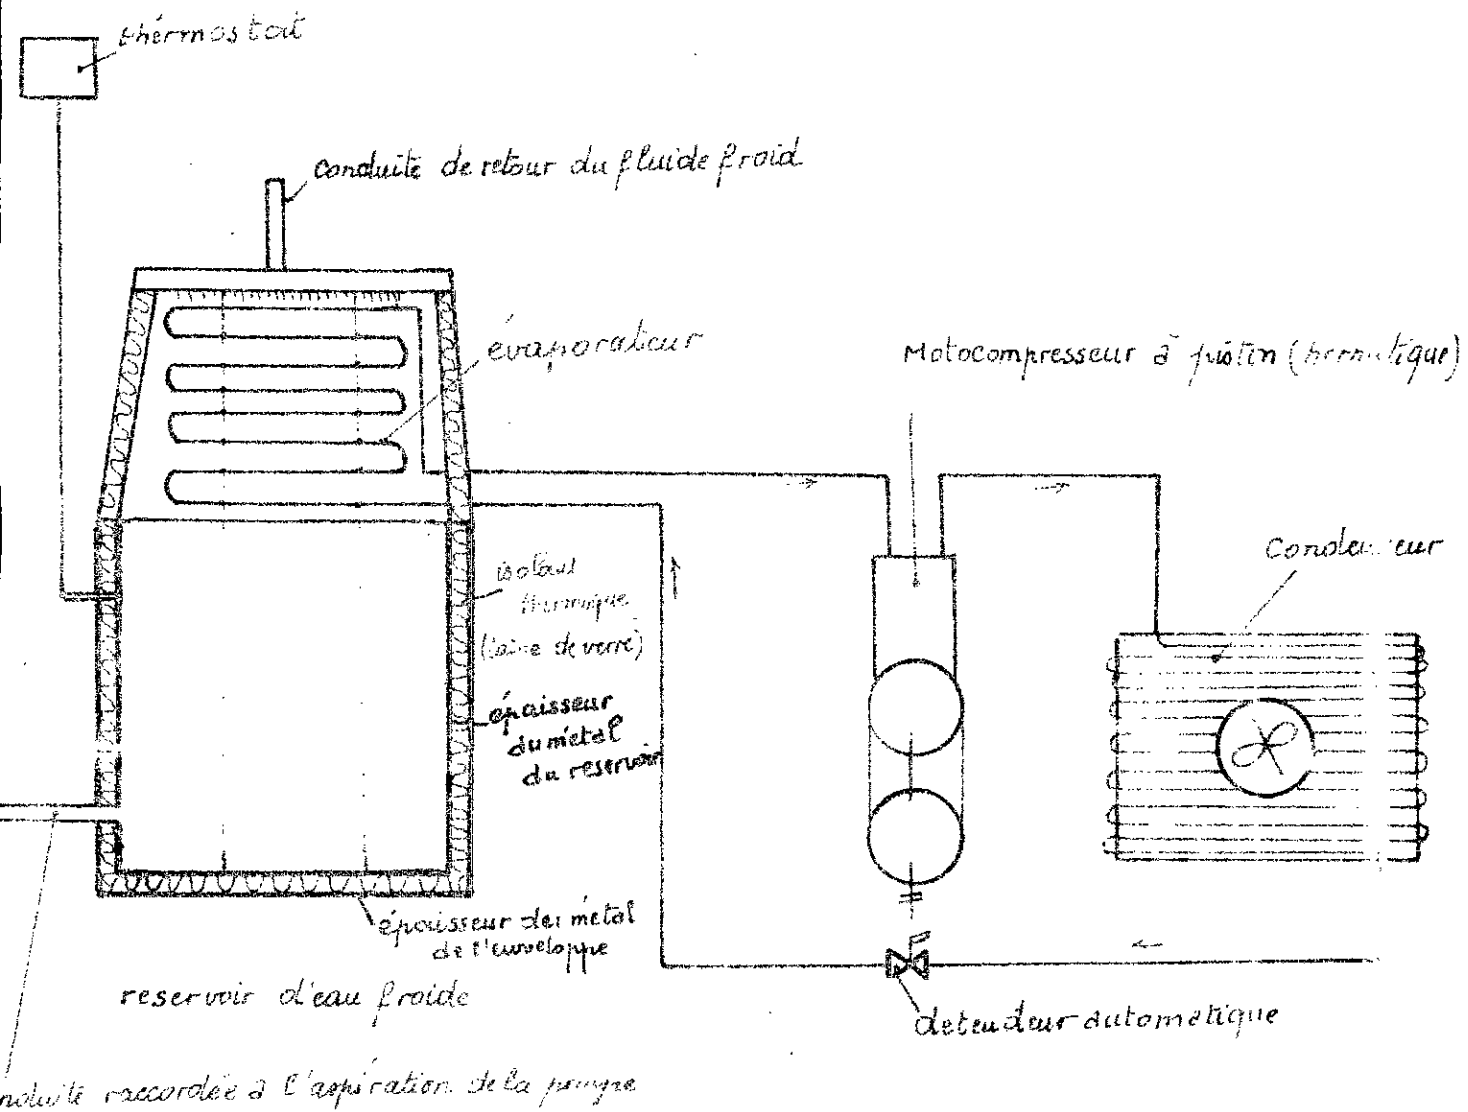 thérmostat
conduite de retour du fluide froid
évaporateur
Motocompresseur à piston (hermétique)
Condenseur
isolant
thermique
(laine de verre)
épaisseur
du métal
du reservoir
épaisseur du métal
de l'enveloppe
reservoir d'eau froide
detendeur automatique
raccordée à l'aspiration de la pompe